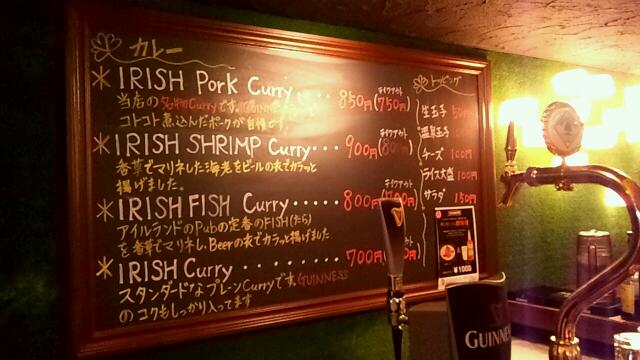 カレー
* IRISH Pork Curry..... 850円 (テイクアウト 750円)
当店の名物Curryです。GUINNESS
コトコト煮込んだポークが自慢です。
* IRISH SHRIMP Curry... 900円 (テイクアウト
香草でマリネした海老をビールの衣でカラッと
揚げました。
* IRISH FISH Curry.... 800円
アイルランドのPubの定番のFISH(たら)
を香草でマリネし、Beerの衣でカラッと揚げました
* IRISH Curry........ 700円
スタンダードなプレーンCurryです。GUINNESS
のコクもしっかり入ってます
トッピング
生玉子 50円
温泉玉子
チーズ 100円
ライス大盛 100円
サラダ 150円
¥1000
GUINNESS